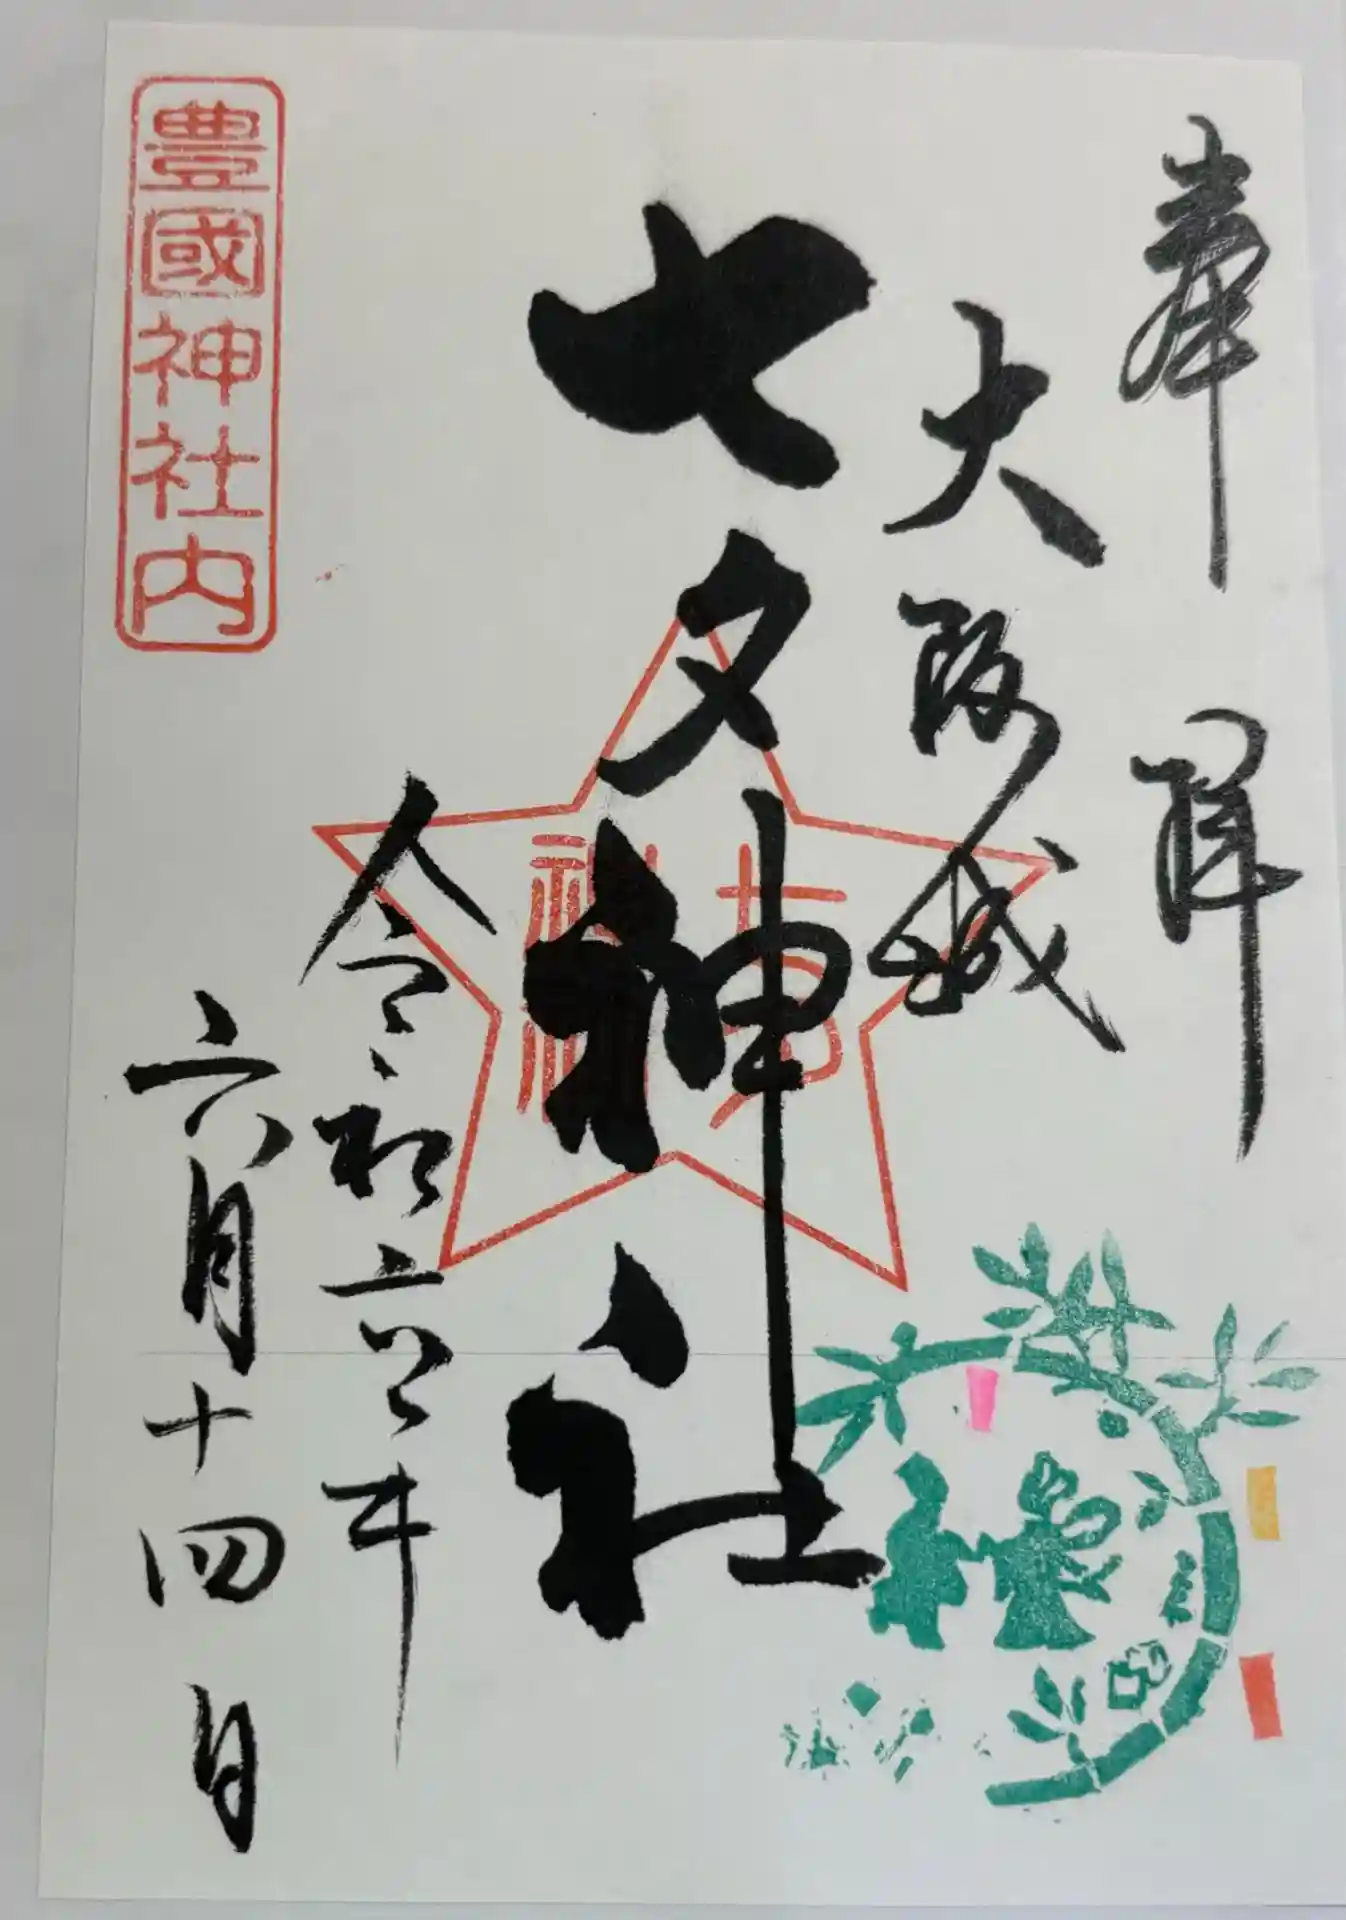 奉拝
大阪城
七夕神社
七夕
神社
令和六年
六月十四日
豊國神社内